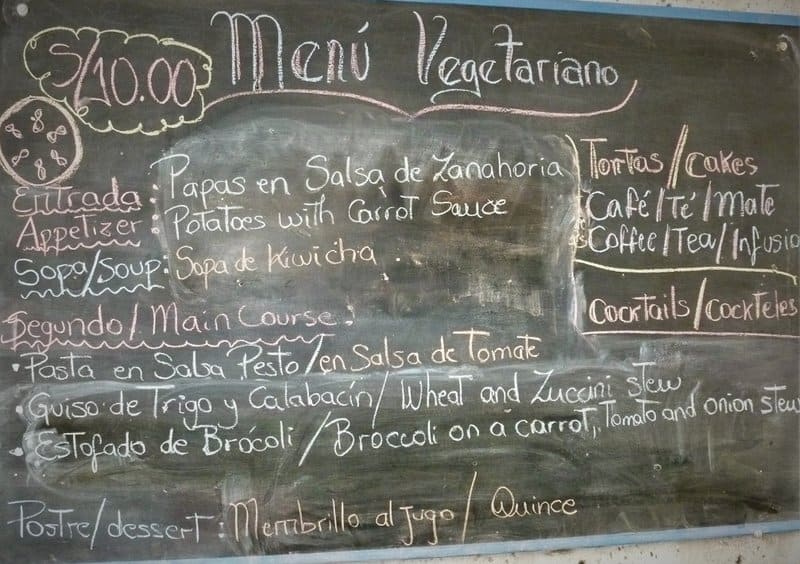 S/10.00
Menú Vegetariano
Entrada : Papas en Salsa de Zanahoria
Appetizer : Potatoes with Carrot Sauce
Sopa/Soup: Sopa de Kiwicha .
Segundo/Main Course:
• Pasta en Salsa Pesto/en Salsa de Tomate
• Guiso de Trigo y Calabacín/ Wheat and Zuccini stew
• Estofado de Brócoli / Broccoli on a carrot, Tomato and onion stew
Postre/dessert: Membrillo al jugo/ Quince
Tortas/Cakes
Café/Té/Mate
Coffee/Tea/Infusio
Cocktails/Cockteles